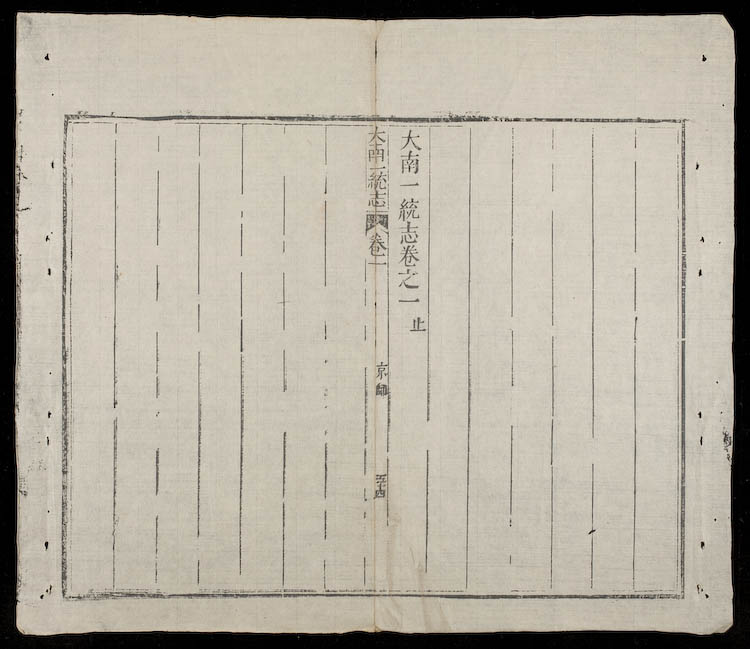 大南一統志卷之一 止
大南一統志
卷一
京師
五十四